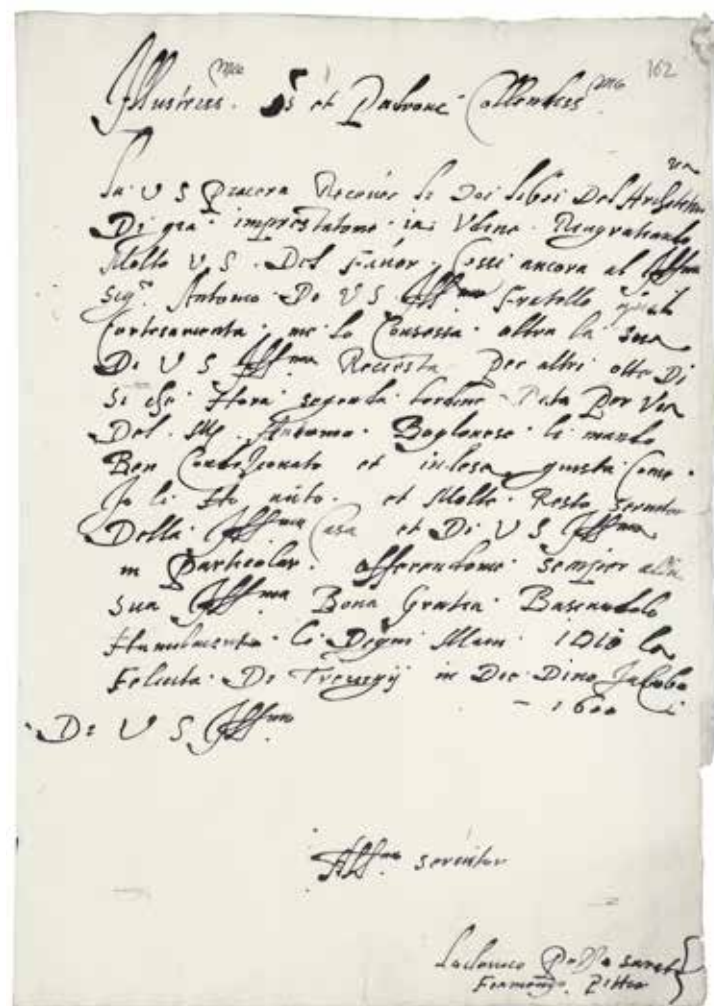 162
Illustriss.mo Sr et Patrone Collendiss.mo
La V S Piacera Receuer li Doi libri Del Architetura
Di gia imprestatome in Vdine Ringratiando
Molto V S Del fauor Cossi ancora al Ill.mo
Sigr Antonio De V S Ill.ma fratello qual
Cortesamenta me lo Consessa oltra la sua
Di V S Ill.ma Reciesta per altri otto Di
si che Hora segonda l ordine Data Per Via
Del Antonio Boglonese li mando
Ben Conditzonato et inlesa giusta Come
Jo li Ho auto et Molto Resto seruitor
Della Ill.ma Casa et Di V S Ill.ma
in Particolar offerendome semper alla
sua Ill.ma Bona Gratia Basandolo
Humilmente le Degni Man IDio la
Felicita De in Die Diuo Jacobo
1600
Di V S Ill.ma
seruitor
Lodouico